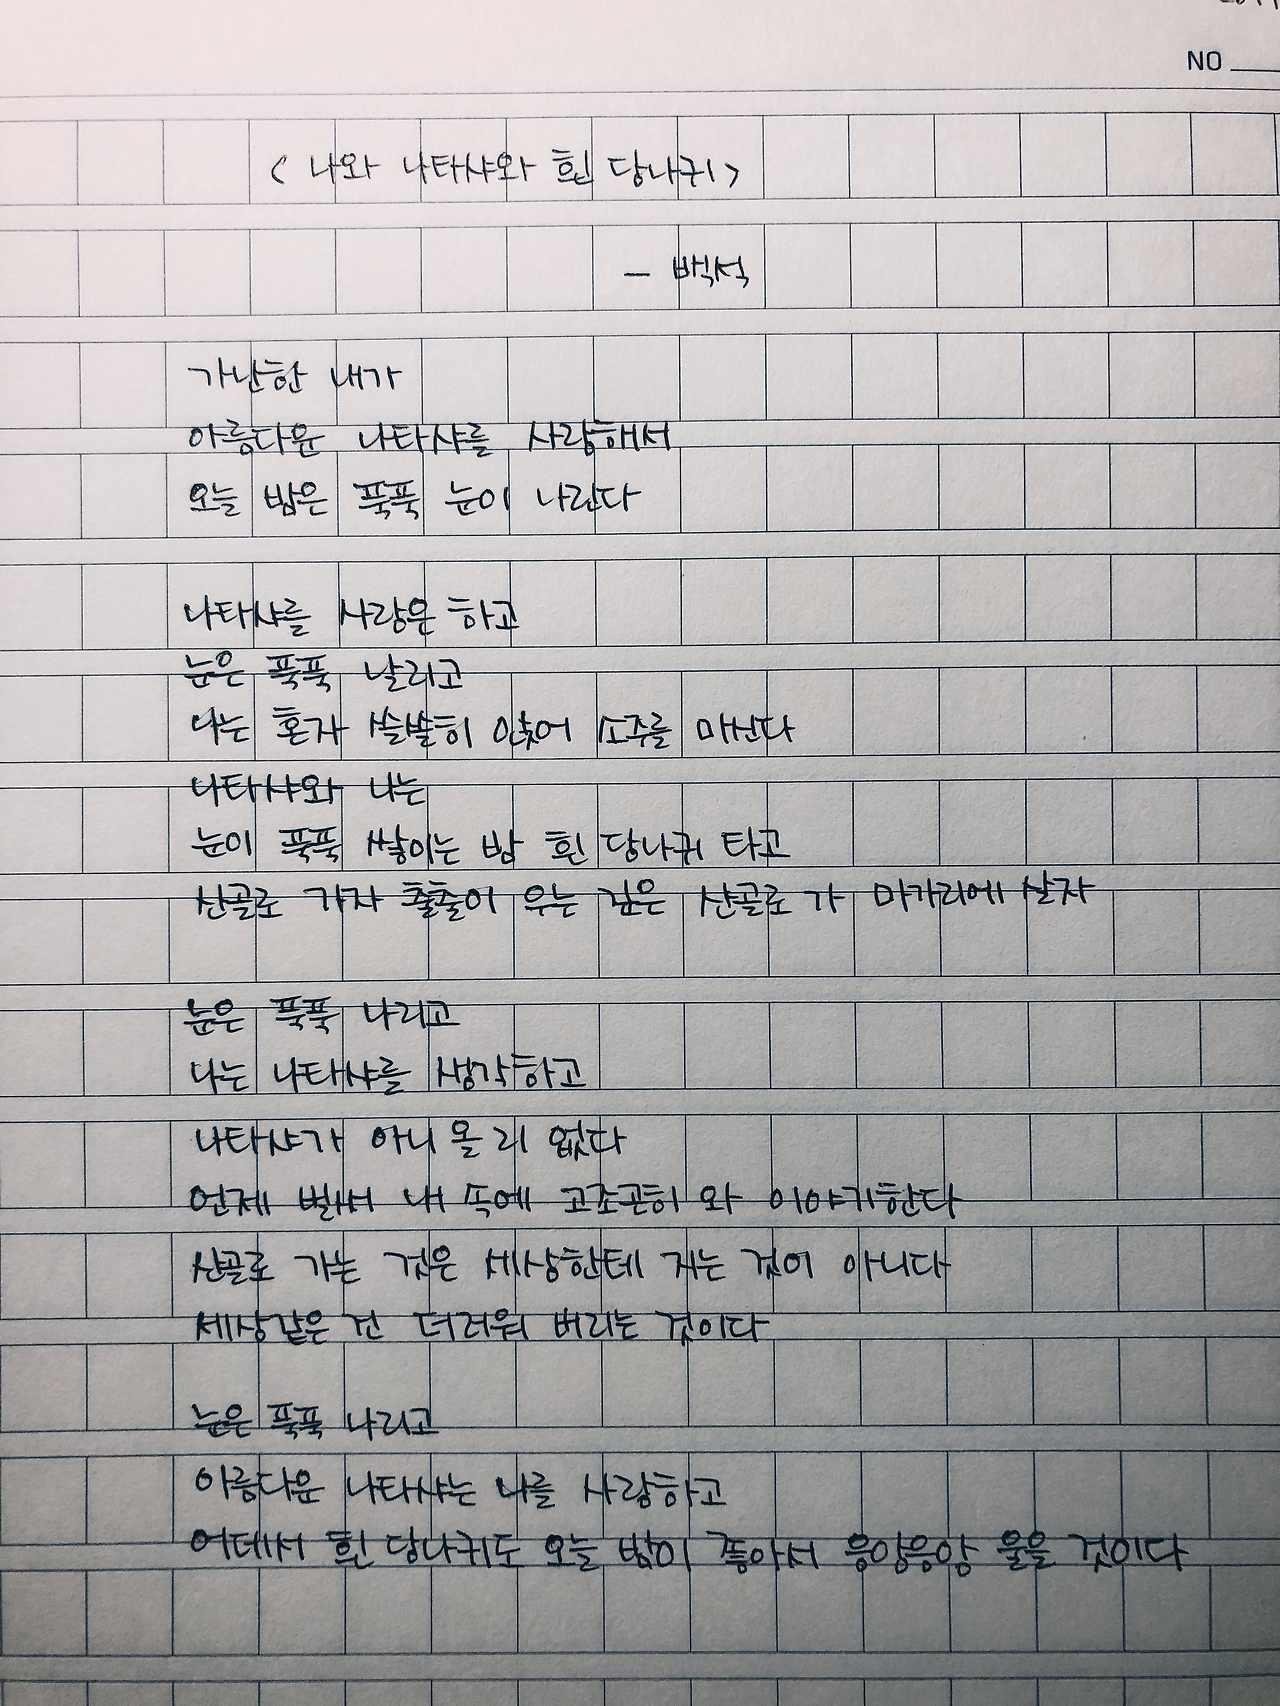 NO
< 나와 나타샤와 흰 당나귀 >
- 백석
가난한 내가
아름다운 나타샤를 사랑해서
오늘 밤은 푹푹 눈이 나린다
나타샤를 사랑은 하고
눈은 푹푹 날리고
나는 혼자 쓸쓸히 앉어 소주를 마신다
나타샤와 나는
눈이 푹푹 쌓이는 밤 흰 당나귀 타고
산골로 가자 출출이 우는 깊은 산골로 가 마가리에 살자
눈은 푹푹 나리고
나는 나타샤를 생각하고
나타샤가 아니 올 리 없다
언제 벌써 내 속에 고조곤히 와 이야기한다
산골로 가는 것은 세상한테 지는 것이 아니다
세상같은 건 더러워 버리는 것이다
눈은 푹푹 나리고
아름다운 나타샤는 나를 사랑하고
어데서 흰 당나귀도 오늘 밤이 좋아서 응앙응앙 울을 것이다